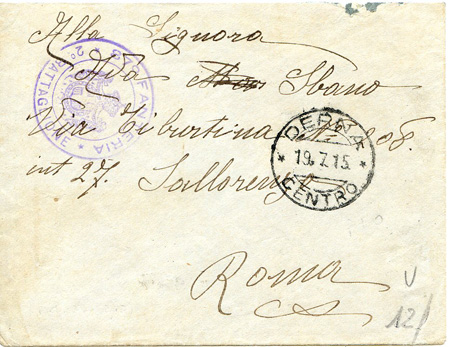 Alla Signora
Ada Sbano
Via Tiburtina N° 208.
int 27. Sallorenzo
Roma
FANTERIA
2° BATTAGLIONE
DERNA
19.7.15.
CENTRO
V
12/